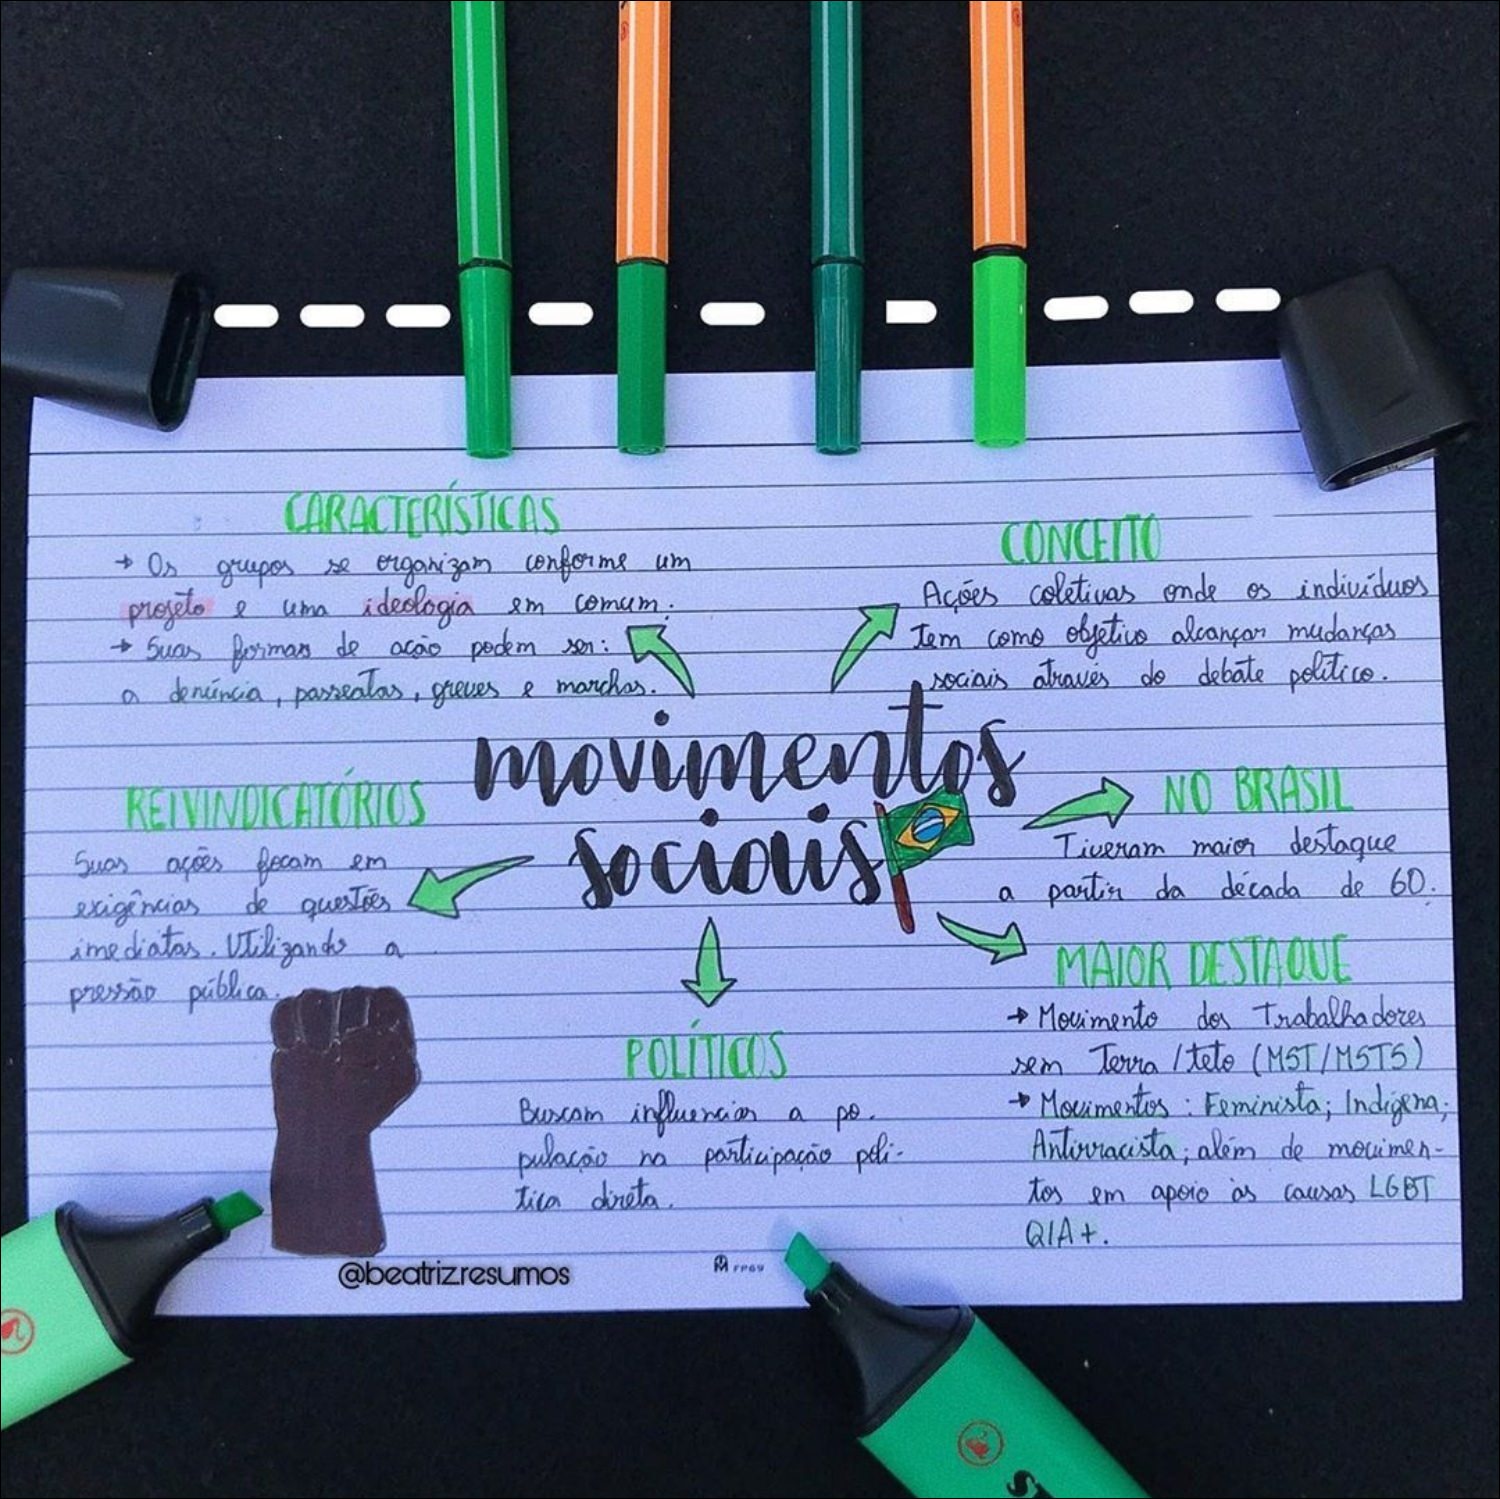 CARACTERÍSTICAS
→ Os grupos se organizam conforme um
projeto e uma ideologia em comum.
→ Suas formas de ação podem ser:
a denúncia, passeatas, greves e marchas.
CONCEITO
Ações coletivas onde os indivíduos
tem como objetivo alcançar mudanças
sociais através do debate político.
movimentos
sociais
REIVINDICATÓRIOS
Suas ações focam em
exigências de questões
imediatas. Utilizando a
pressão pública.
NO BRASIL
Tiveram maior destaque
a partir da década de 60.
MAIOR DESTAQUE
→ Movimento dos Trabalhadores
sem Terra/teto (MST/MSTS)
→ Movimentos: Feminista; Indígena;
Antirracista; além de movimen-
tos em apoio às causas LGBT
QIA+.
POLÍTICOS
Buscam influenciar a po-
pulação na participação polí-
tica direta.
@beatrizresumos